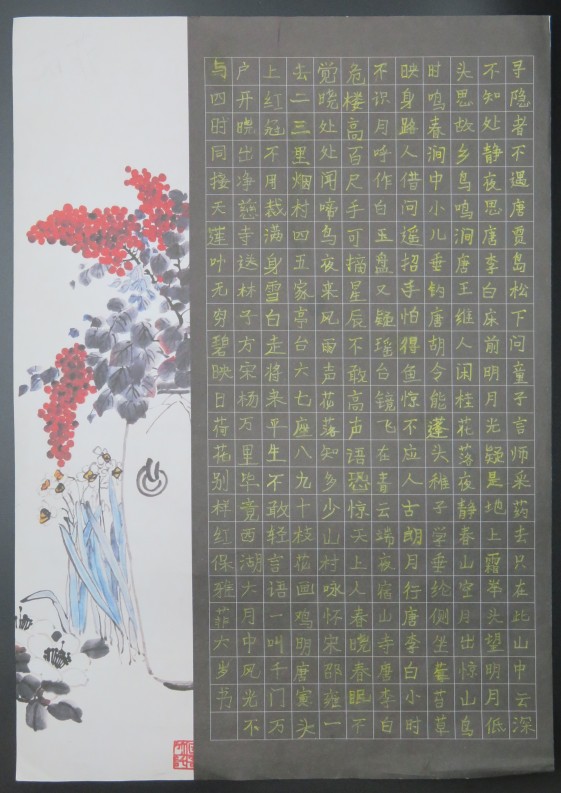 寻隐者不遇唐贾岛松下问童子言师采药去只在此山中云深
不知处静夜思唐李白床前明月光疑是地上霜举头望明月低
头思故乡鸟鸣涧唐王维人闲桂花落夜静春山空月出惊山鸟
时鸣春涧中小儿垂钓唐胡令能蓬头稚子学垂纶侧坐莓苔草
映身路人借问遥招手怕得鱼惊不应人古朗月行唐李白小时
不识月呼作白玉盘又疑瑶台镜飞在青云端夜宿山寺唐李白
危楼高百尺手可摘星辰不敢高声语恐惊天上人春晓春眠不
觉晓处处闻啼鸟夜来风雨声花落知多少山村咏怀宋邵雍一
去二三里烟村四五家亭台六七座八九十枝花画鸡明唐寅头
上红冠不用裁满身雪白走将来平生不敢轻言语一叫千门万
户开晓出净慈寺送林子方宋杨万里毕竟西湖大月中风光不
与四时同接天莲叶无穷碧映日荷花别样红保雅菲六岁书